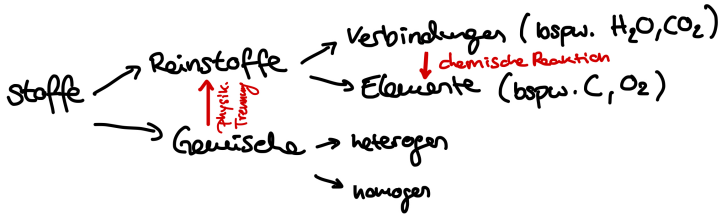 Stoffe
Reinstoffe
Verbindungen (bspw. H₂O, CO₂)
chemische Reaktion
Elemente (bspw. C, O₂)
Physik.
Trennung
Gemische
heterogen
homogen